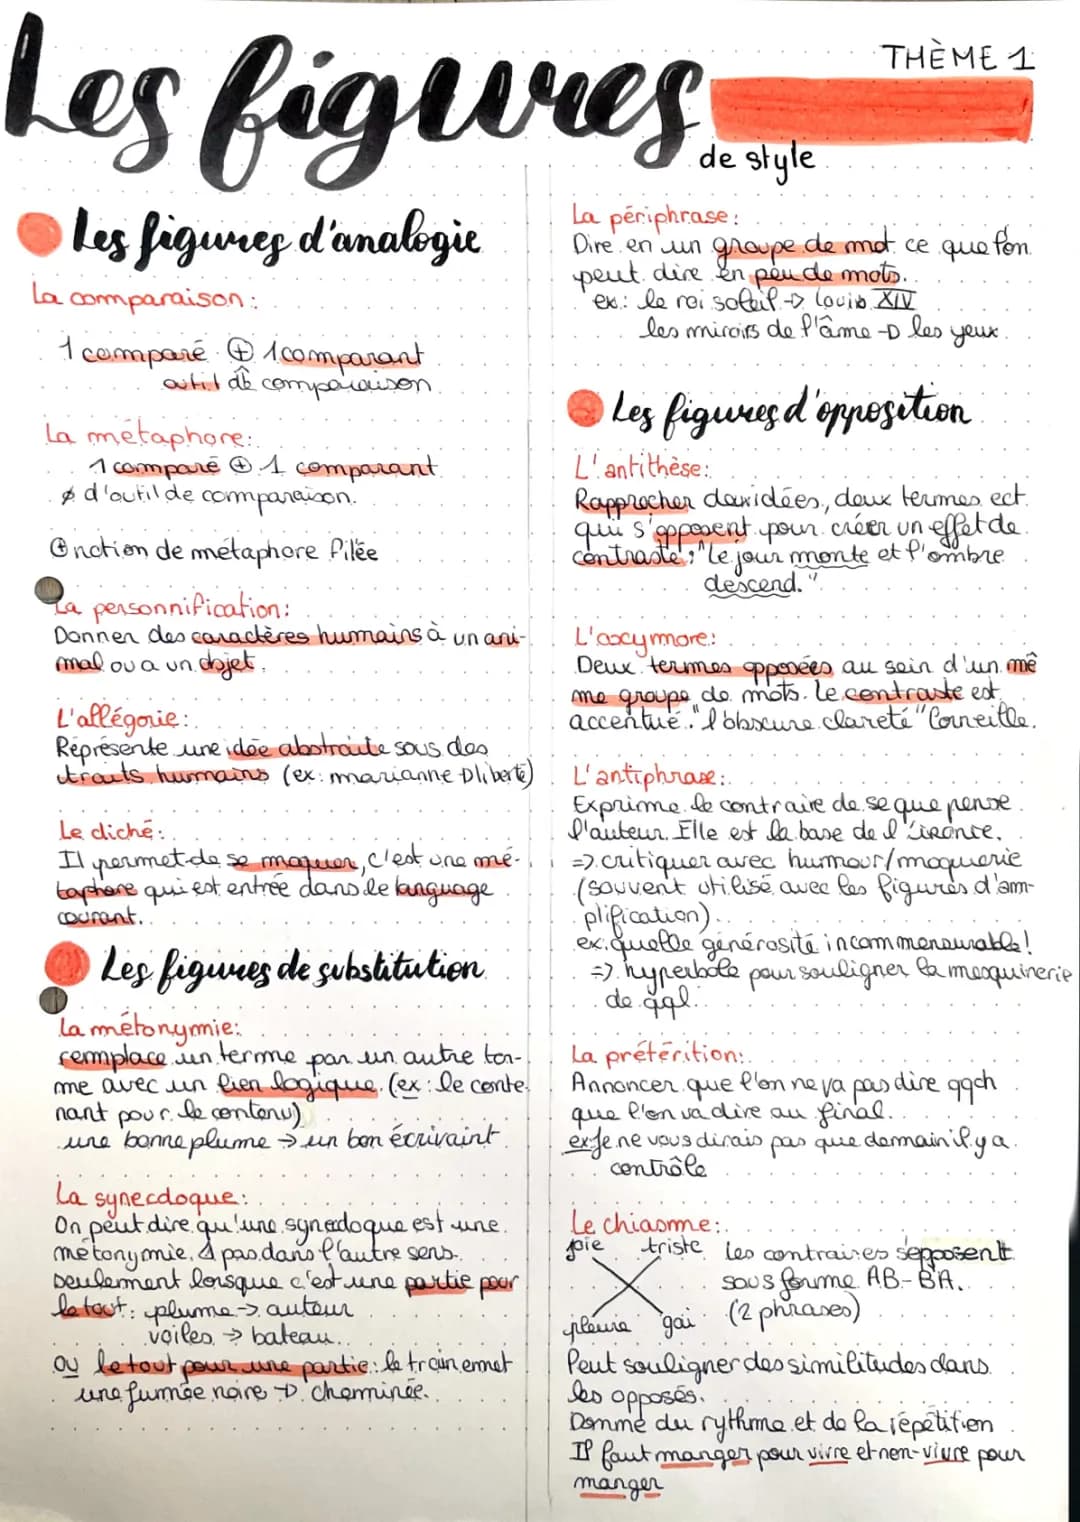 Les figures
THÈME 1
de style
Les figures d'analogie
La comparaison:
1 comparé ⊕ 1 comparant
outil de comparaison
La métaphore:
1 comparé ⊕ 1 comparant
ø d'outil de comparaison.
⊕ nction de métaphore filée
La personnification:
Donner des caractères humains à un ani-
mal ou a un objet.
L'allégorie:
Représente une idée abstraite sous des
traits humains (ex: marianne → liberté)
Le cliché:
Il permet de se moquer, c'est une mé-
taphore qui est entrée dans le language
courant.
Les figures de substitution
La métonymie:
remplace un terme par un autre ter-
me avec un lien logique. (ex: le conte
nant pour le contenu)
une bonne plume → un bon écrivaint
La synecdoque:
On peut dire qu'une synecdoque est une
métonymie. ⚠ pas dans l'autre sens.
Seulement lorsque c'est une partie pour
le tout: plume → auteur
voiles → bateau.
ou le tout pour une partie: le train emet
une fumée noire → cheminée.
La périphrase:
Dire en un groupe de mot ce que l'on
peut dire en peu de mots.
ex: le roi soleil → Louis XIV
les miroirs de l'âme → les yeux
Les figures d'opposition
L'antithèse:
Rapprocher deux idées, deux termes ect
qui s'opposent pour créer un effet de
contraste: "Le jour monte et l'ombre
descend."
L'oxymore:
Deux termes opposées au sein d'un mê
me groupe de mots. Le contraste est
accentué. "l'obscure clareté" Corneille.
L'antiphrase:
Exprime le contraire de se que pense
l'auteur. Elle est la base de l'ironie.
=> critiquer avec humour/moquerie
(souvent utilisé avec les figures d'am-
plification).
ex: quelle générosité incommensurable!
=> hyperbole pour souligner la mesquinerie
de qql.
La prétérition:
Annoncer que l'on ne va pas dire qqch
que l'on va dire au final.
ex: Je ne vous dirais pas que demain il y a
contrôle
Le chiasme:
joie triste Les contraires s'opposent
sous forme AB-BA.
pleure gai (2 phrases)
Peut souligner des similitudes dans
les opposés.
Donne du rythme et de la répétition
Il faut manger pour vivre et non vivre pour
manger